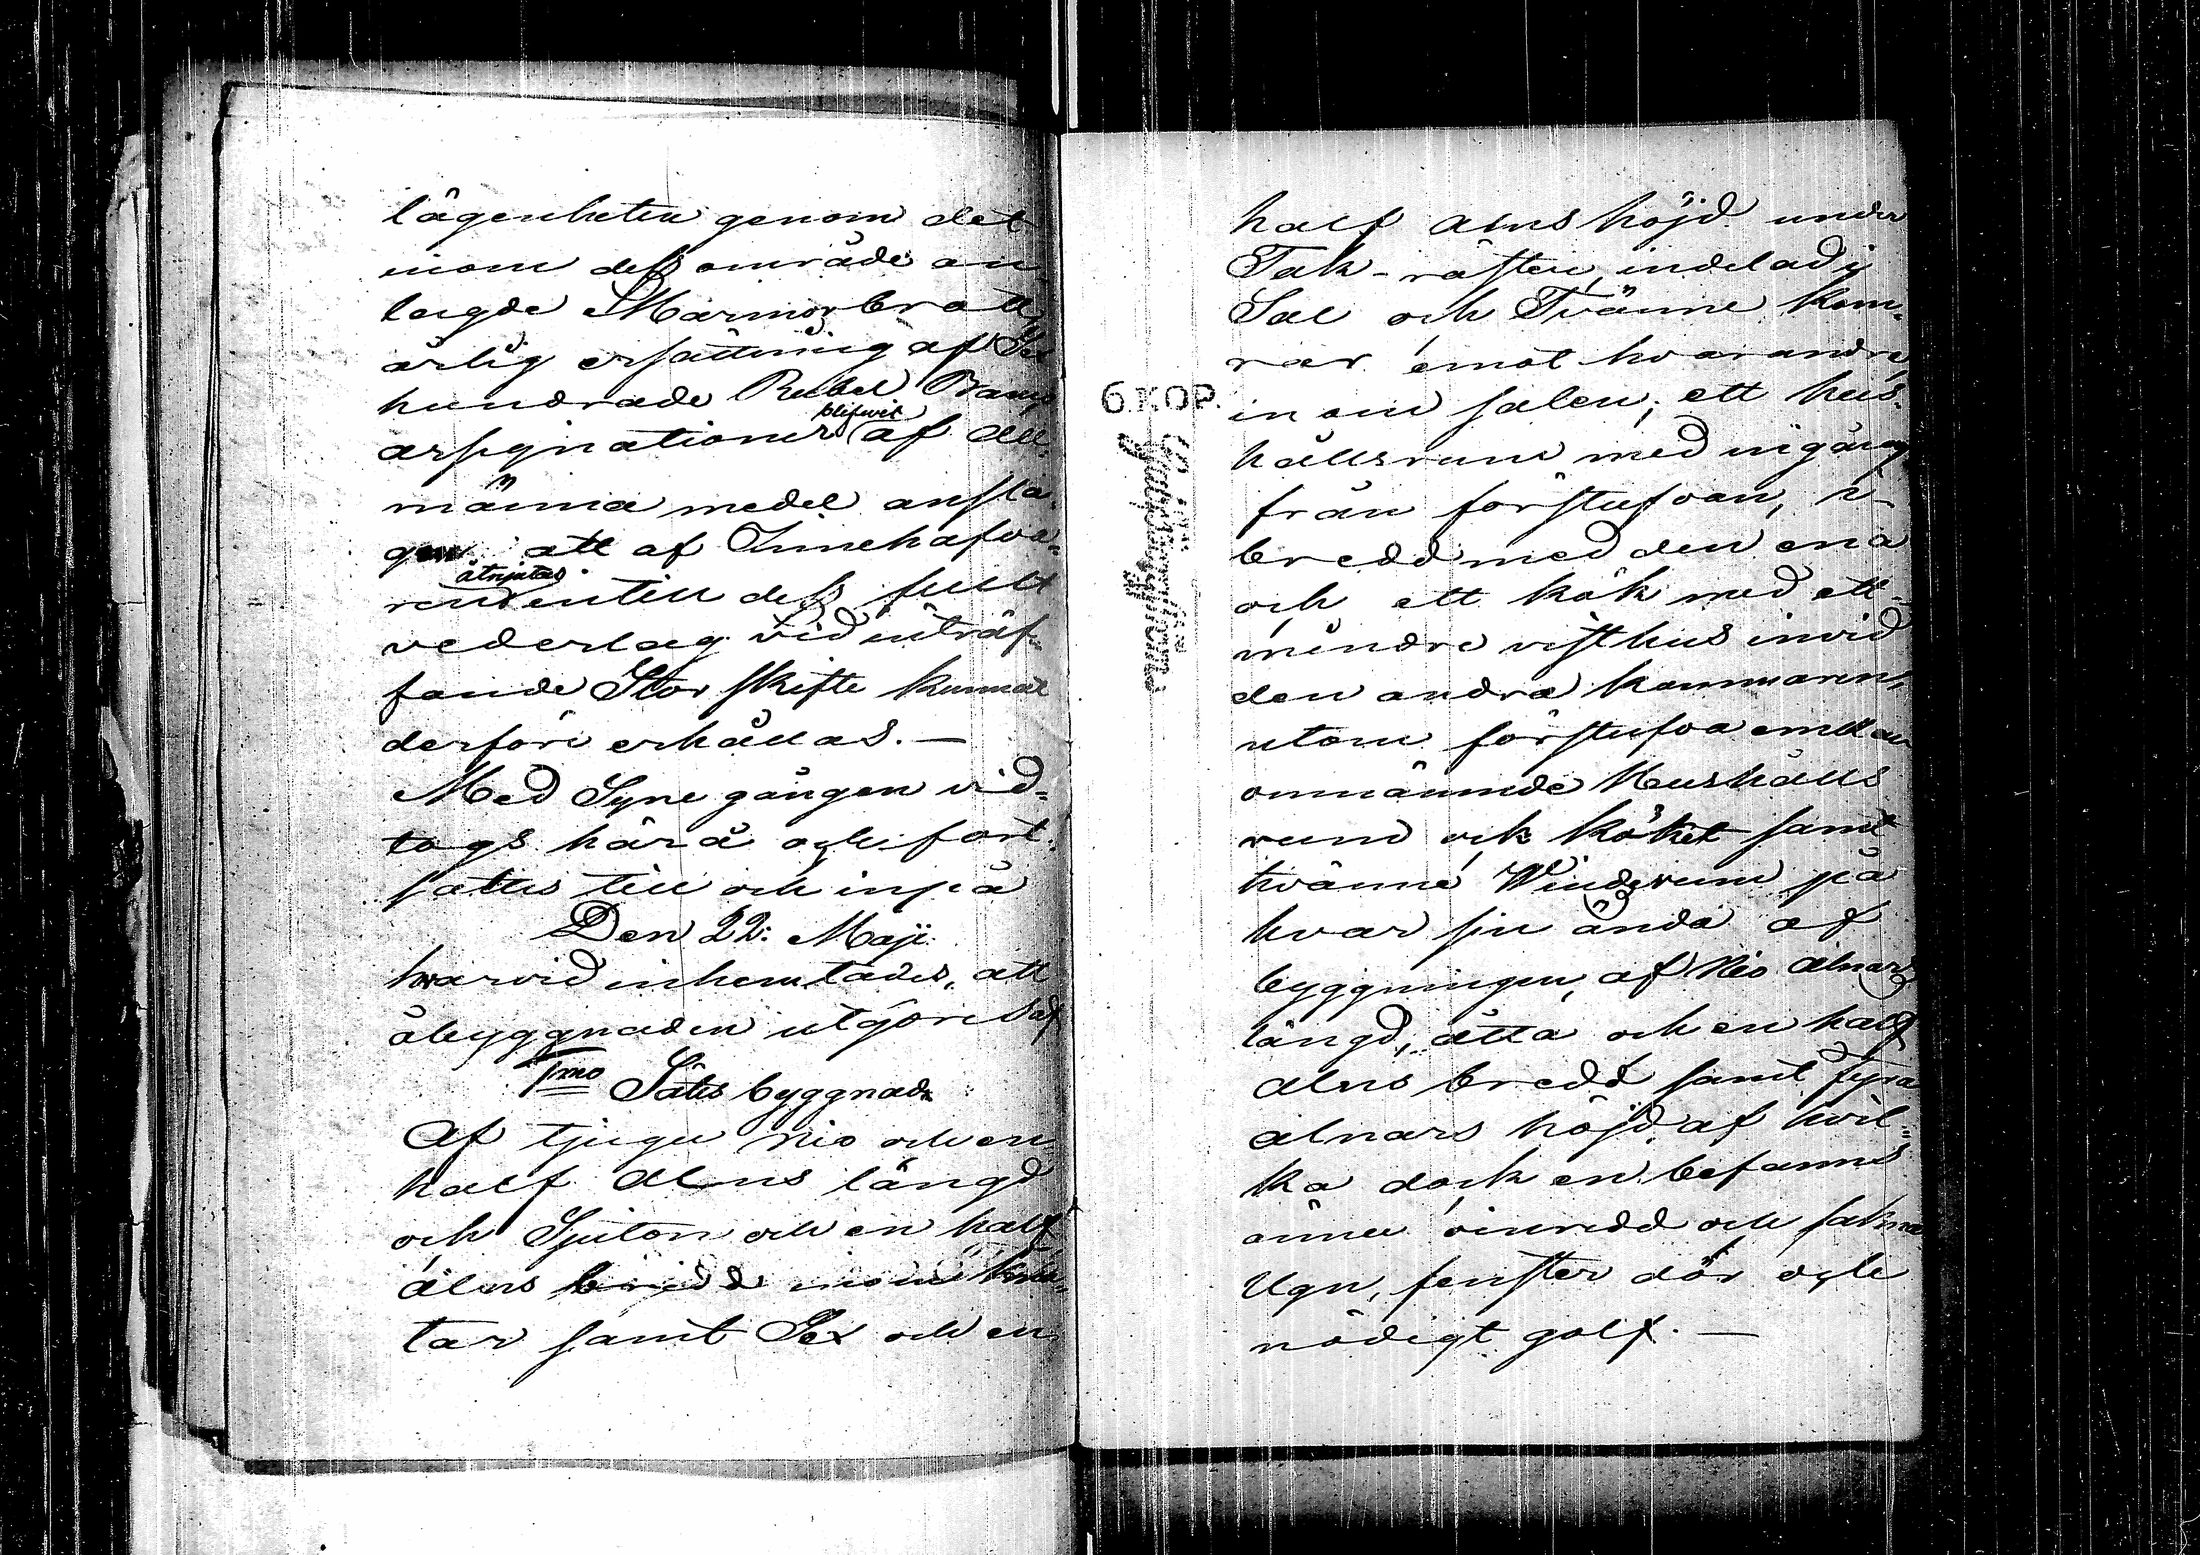 lägenheten genom det
inom dess område an-
lagde Marmorbrott,
årlig ersättning af Sex
hundrade Rubel Banco
assignationer blifwit af all-
männa medel ansla-
gen att af Innehafva-
ren åtnjutas intill dess fullt
vederlag vid inträf-
fande Storskifte kunnat
derföre erhållas. —
Med Syne gången vid-
togs härå och fort-
sattes till och inpå
Den 22: Maji
hvarvid inhemtades, att
åbyggnaden utgöres af
1mo Sätes byggnad
Af tjugu nio och en
half alns längd
och Sjuton och en half
alns bredd inom knu-
tar samt Sex och en
half alns höjd under
Tak-råsten, indelad i
Sal och Tvänne kam-
rar emot hvarandra
inom salen; ett hus-
hållsrum med ingång
från förstufvan, i
bredd med den ena
och ett kök med ett
mindre visthus invid
den andra kammaren,
utom förstufva emellan
omnämnde Hushålls
rum och köket samt
tvänne Windsrum på
hvar sin ända af
byggningen, af Nio alnars
längd, åtta och en half
alns bredd samt fyra
alnars höjd, af hvil-
ka dock en befanns
ännu oinredd och sakna
Ugn, fenster dör och
nödigt golf. —
6 KOP.